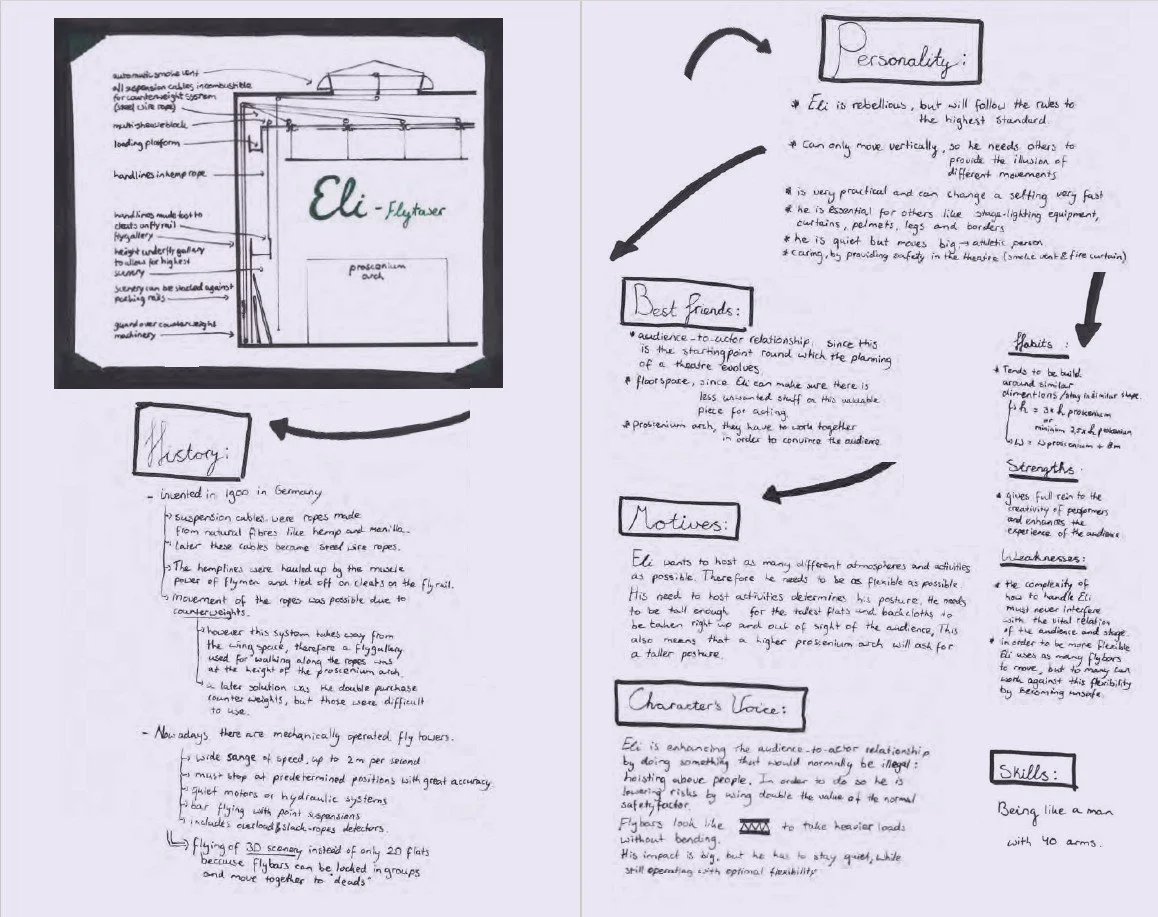 automatic smoke vent
all suspension cables incombustible
for counterweight system
(steel wire rope)
multi-sheave block
loading platform
handlines in hemp rope
handlines made foot to
cleats on fly rail
flygallery
height under fly gallery
to allow for highest
scenery
scenery can be stacked against
packing rails
guard over counterweight
machinery
Eli - Flytower
proscenium
arch
History:
- invented in 1900 in Germany
suspension cables were ropes made
from natural fibres like hemp and manilla.
later these cables became steel wire ropes.
The hemplines were hauled up by the muscle
power of flymen and tied off on cleats on the flyrail.
movement of the ropes was possible due to
counterweights.
however this system takes way from
the wingspace, therefore a flygallery
used for walking along the ropes was
at the height of the proscenium arch.
a later solution was the double purchase
counter weights, but those were difficult
to use.
- Nowadays there are mechanically operated fly towers.
wide range of speed, up to 2m per second
must stop at predetermined positions with great accuracy.
quiet motors or hydraulic systems
bar flying with point suspensions
includes overload & slack-ropes detectors.
flying of 3D scenery instead of only 2D flats
because flybars can be locked in groups
and move together to "deads"
Personality:
* Eli is rebellious, but will follow the rules to
the highest standard.
* Can only move vertically, so he needs others to
provide the illusion of
different movements
* is very practical and can change a setting very fast
* he is essential for others like stage-lighting equipment,
curtains, pelmets, legs and borders
* he is quiet but moves big → athletic person
* caring, by providing safety in the theatre (smoke vent & fire curtain)
Best friends:
* audience-to-actor relationship, since this
is the startingpoint round which the planning
of a theatre evolves
* floorspace, since Eli can make sure there is
less unwanted stuff on this valuable
piece for acting.
* proscenium arch, they have to work together
in order to convince the audience
Habits:
* Tends to be build
around similar
dimentions / stay in similar shape.
h = 3 x h proscenium
or
minimum 2,5 x h proscenium
w = w proscenium + 8m
Strengths:
* gives full rein to the
creativity of performers
and enhances the
experience of the audience
Weaknesses:
* the complexity of
how to handle Eli
must never interfere
with the vital relation
of the audience and stage.
* in order to be more flexible
Eli uses as many flybars
to move, but to many can
work against this flexibility
by becoming unsafe.
Motives:
Eli wants to host as many different atmospheres and activities
as possible. Therefore he needs to be as flexible as possible.
His need to host activities determines his posture. He needs
to be tall enough for the talest flats and backcloths to
be taken right up and out of sight of the audience. This
also means that a higher proscenium arch will ask for
a taller posture.
Character's Voice:
Eli is enhancing the audience-to-actor relationship
by doing something that would normally be illegal:
hoisting above people. In order to do so he is
lowering risks by using double the value of the normal
safetyfactor.
Flybars look like to take heavier loads
without bending.
His impact is big, but he has to stay quiet, while
still operating with optimal flexibility
Skills:
Being like a man
with 40 arms.